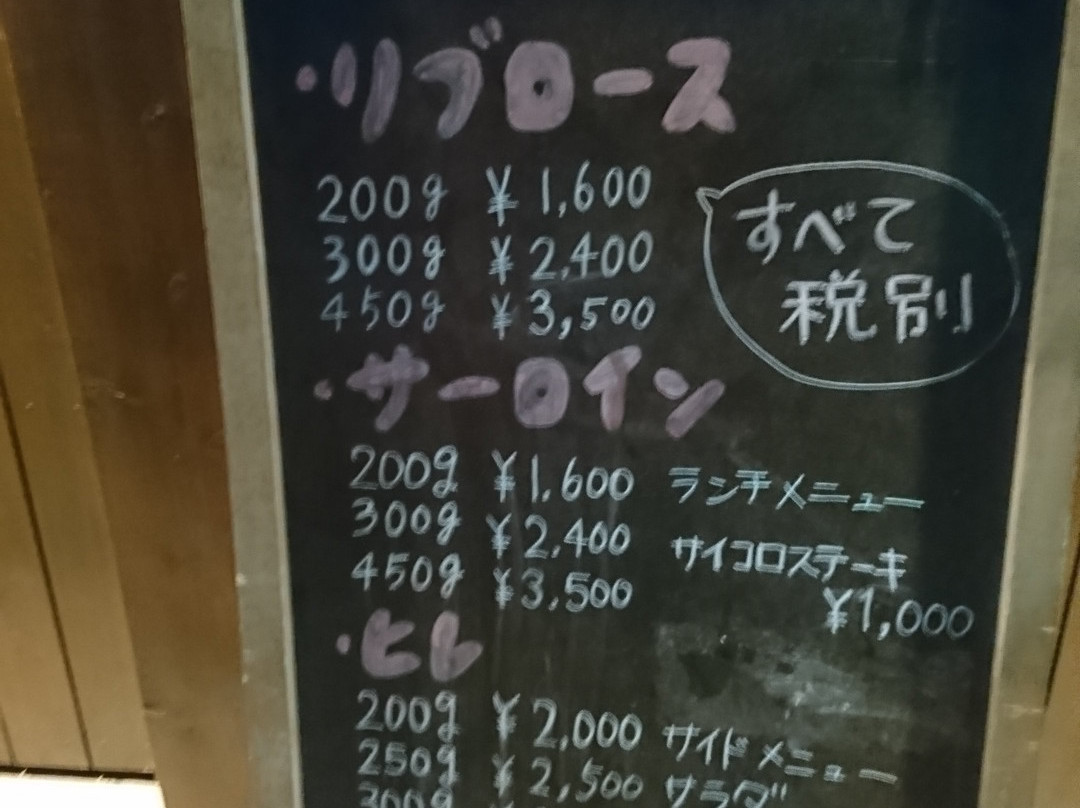 ・リブロース
200g ¥1,600
300g ¥2,400
450g ¥3,500
すべて
税別
・サーロイン
200g ¥1,600
300g ¥2,400
450g ¥3,500
ランチメニュー
サイコロステーキ
¥1,000
・ヒレ
200g ¥2,000
250g ¥2,500
300g
サイドメニュー
サラダ